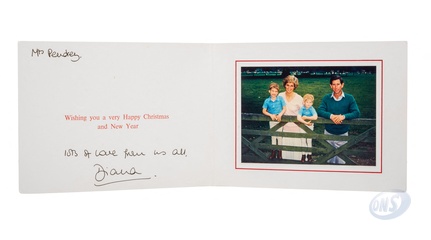 Mrs Pendrey
Wishing you a very Happy Christmas
and New Year
lots of love from us all,
Diana.
DNS